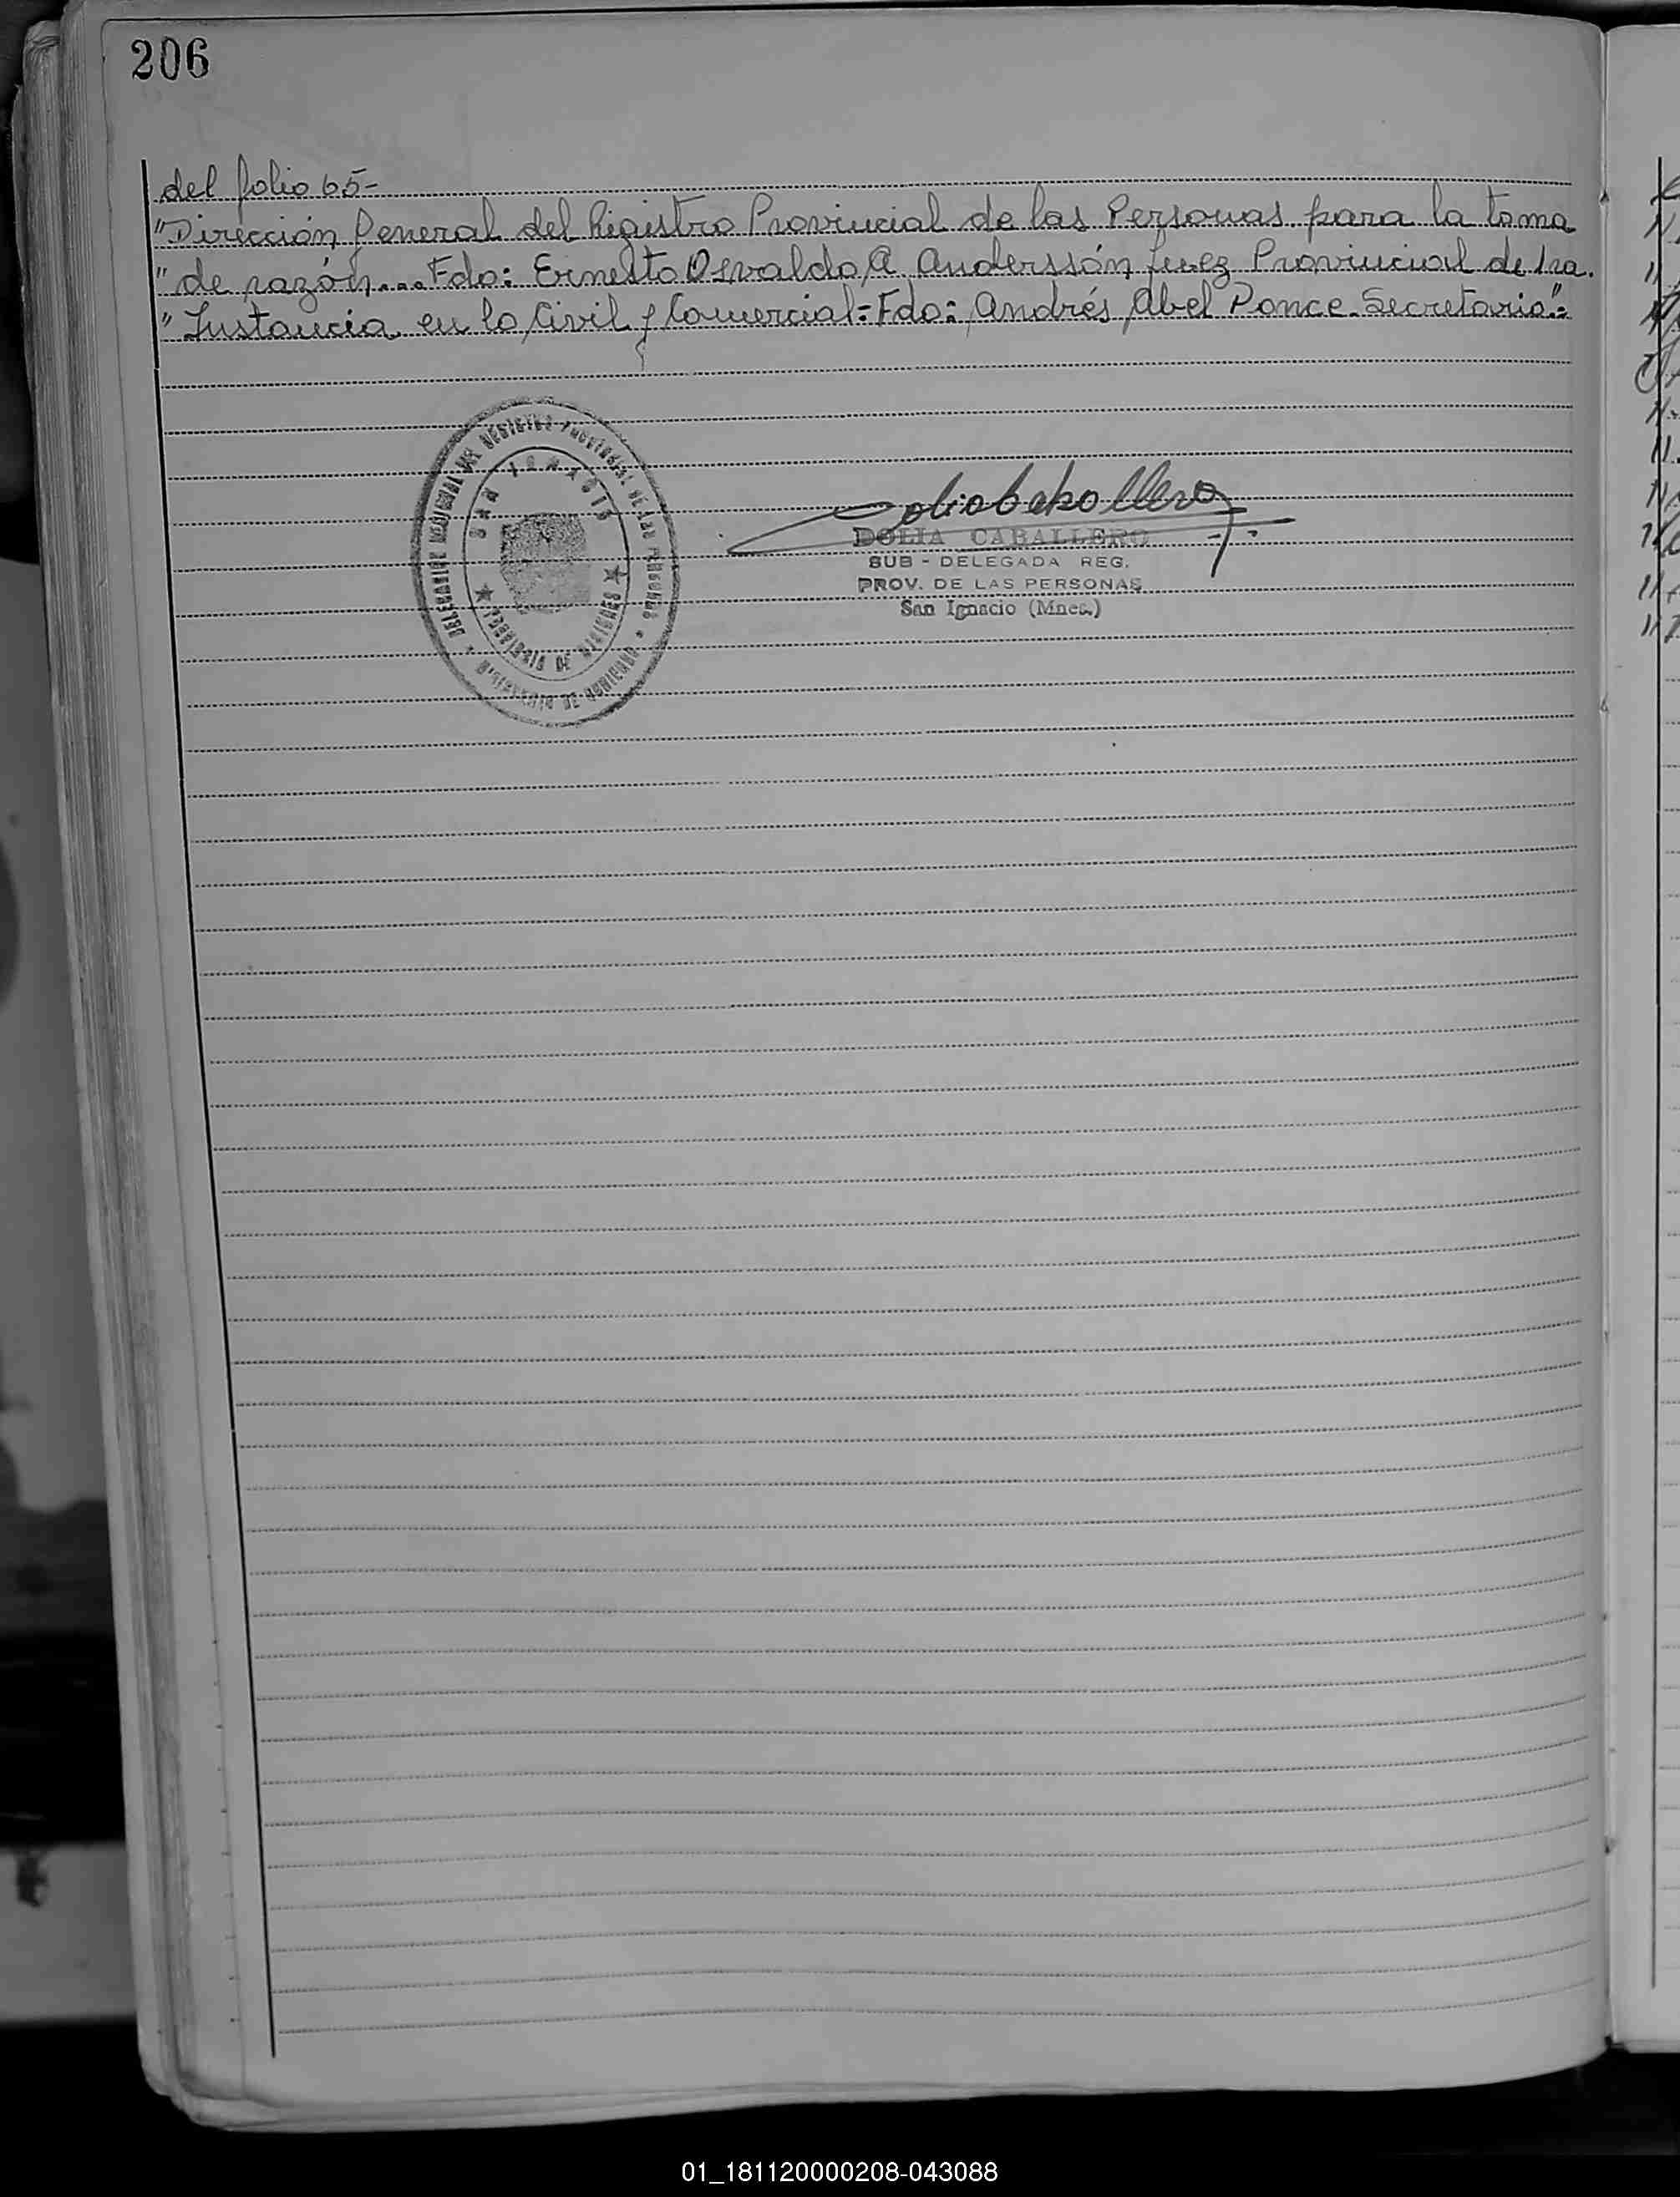 206
del folio 65-
"Dirección General del Registro Provincial de las Personas para la toma
" de razón.... Fdo: Ernesto Osvaldo A. Anderssón Juez Provincial de 1ra.
" Instancia en lo Civil y Comercial: Fdo: Andrés Abel Ponce. Secretario".-
DELEGACION DEL REGISTRO PROVINCIAL DE LAS PERSONAS
SAN IGNACIO
PROVINCIA DE MISIONES
MINISTERIO DE GOBIERNO
Dolia Caballero
DOLIA CABALLERO
SUB - DELEGADA REG.
PROV. DE LAS PERSONAS
San Ignacio (Mnes.)
01_181120000208-043088